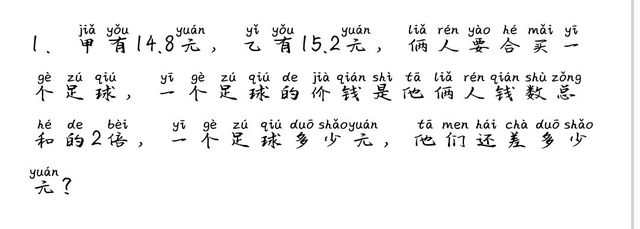 jiǎ yǒu yuán yǐ yǒu yuán liǎ rén yào hé mǎi yī
1、甲有14.8元，乙有15.2元，俩人要合买一
gè zú qiú yī gè zú qiú de jià qián shì tā liǎ rén qián shù zǒng
个足球，一个足球的价钱是他俩人钱数总
hé de bèi yī gè zú qiú duō shǎo yuán tā men hái chà duō shǎo
和的2倍，一个足球多少元，他们还差多少
yuán
元？